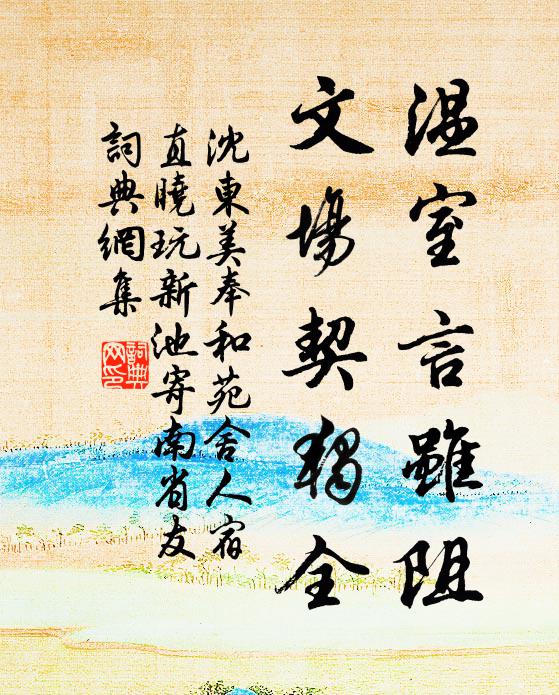 温室言雖阻
文場契獨全
沈東美奉和苑舍人宿
直曉玩新池寄南省友
詞典網集
詞典
網印